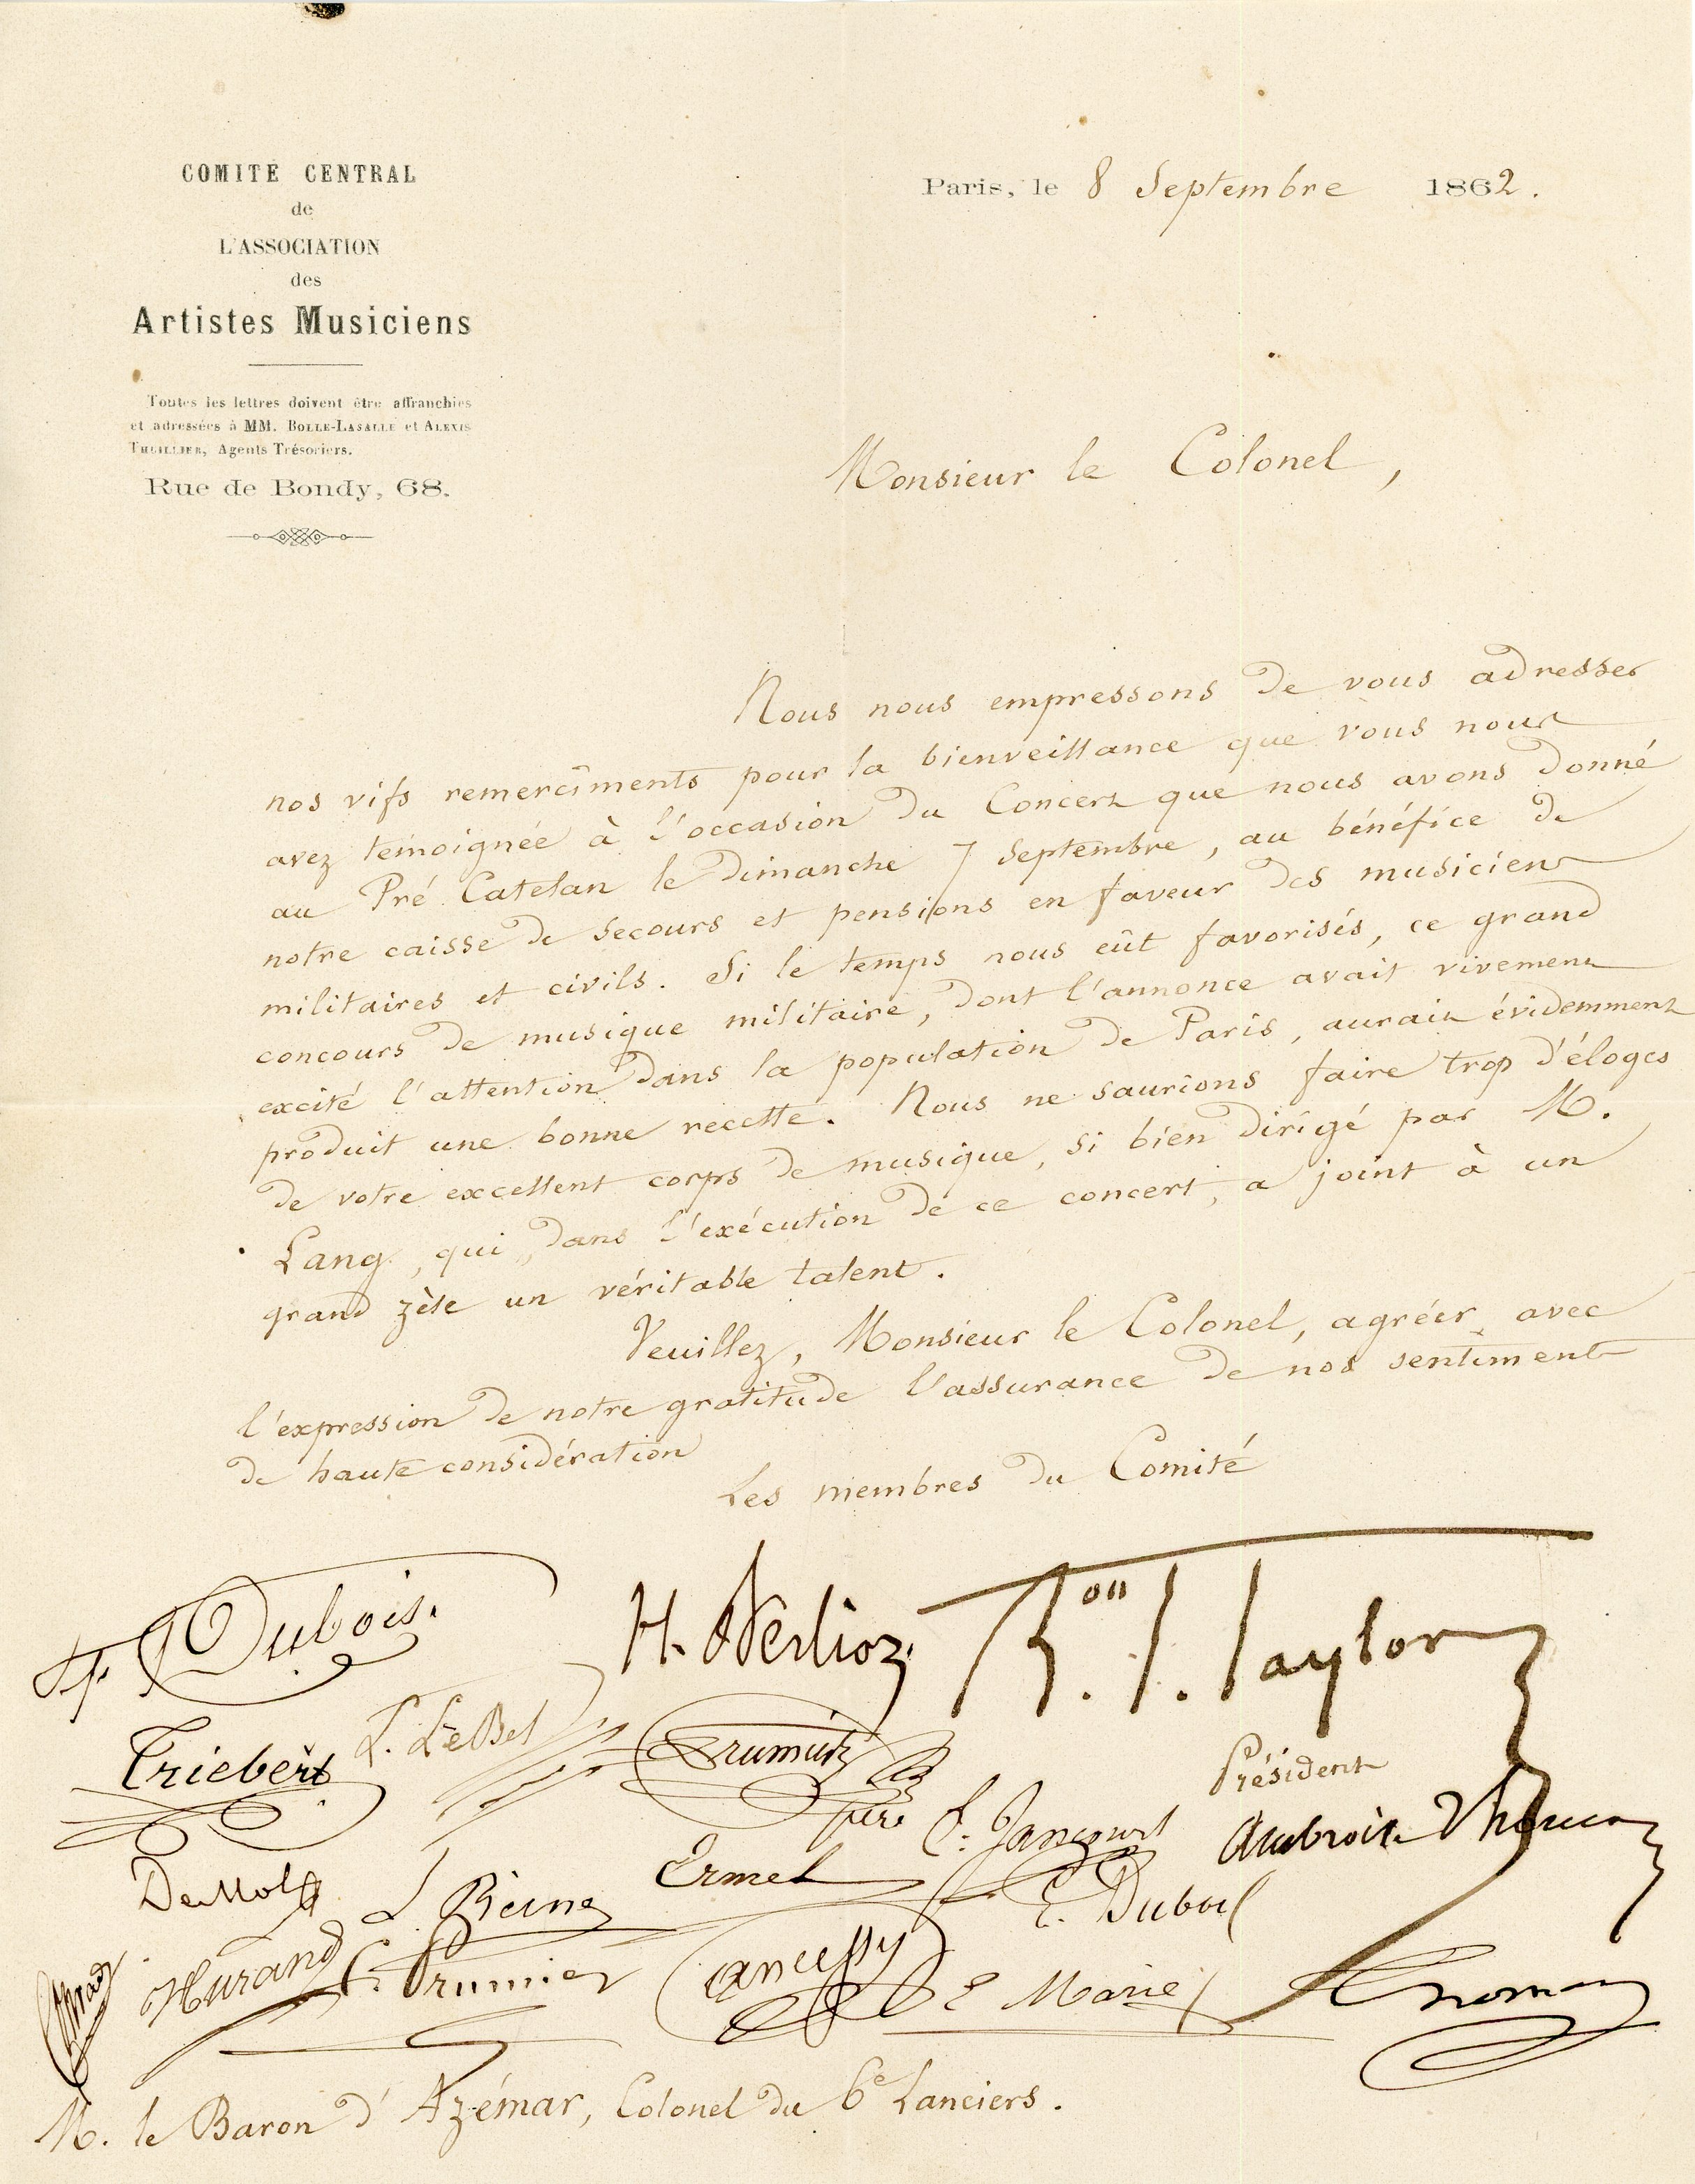 COMITÉ CENTRAL
de
L'ASSOCIATION
des
Artistes Musiciens
Toutes les lettres doivent être affranchies
et adressées à MM. BOLLE-LASALLE et ALEXIS
THUILLIER, Agents Trésoriers.
Rue de Bondy, 68.
Paris, le 8 Septembre 1862.
Monsieur le Colonel,
Nous nous empressons de vous adresser
nos vifs remercîments pour la bienveillance que vous nous
avez témoignée à l'occasion du Concert que nous avons donné
au Pré Catelan le Dimanche 7 Septembre, au bénéfice de
notre caisse de secours et pensions en faveur des musiciens
militaires et civils. Si le temps nous eût favorisés, ce grand
concours de musique militaire, dont l'annonce avait vivement
excité l'attention dans la population de Paris, aurait évidemment
produit une bonne recette. Nous ne saurions faire trop d'éloges
de votre excellent corps de musique, si bien dirigé par M.
Lang, qui, dans l'exécution de ce concert, a joint à un
grand zèle un véritable talent.
Veuillez, Monsieur le Colonel, agréer, avec
l'expression de notre gratitude l'assurance de nos sentiments
de haute considération
Les membres du Comité
F. Dubois.
H. Berlioz
Bon I. Taylor
Président
Triebert
L. LeBel
Prumier
père
E. Jancourt
Ambroise Thomas
DeMol
L. Beine
Ermel
E. Dubois
Hurand
C. Prumier
Cancessy
E Marie
Thomas
M. le Baron d'Azémar, Colonel du 6e Lanciers.